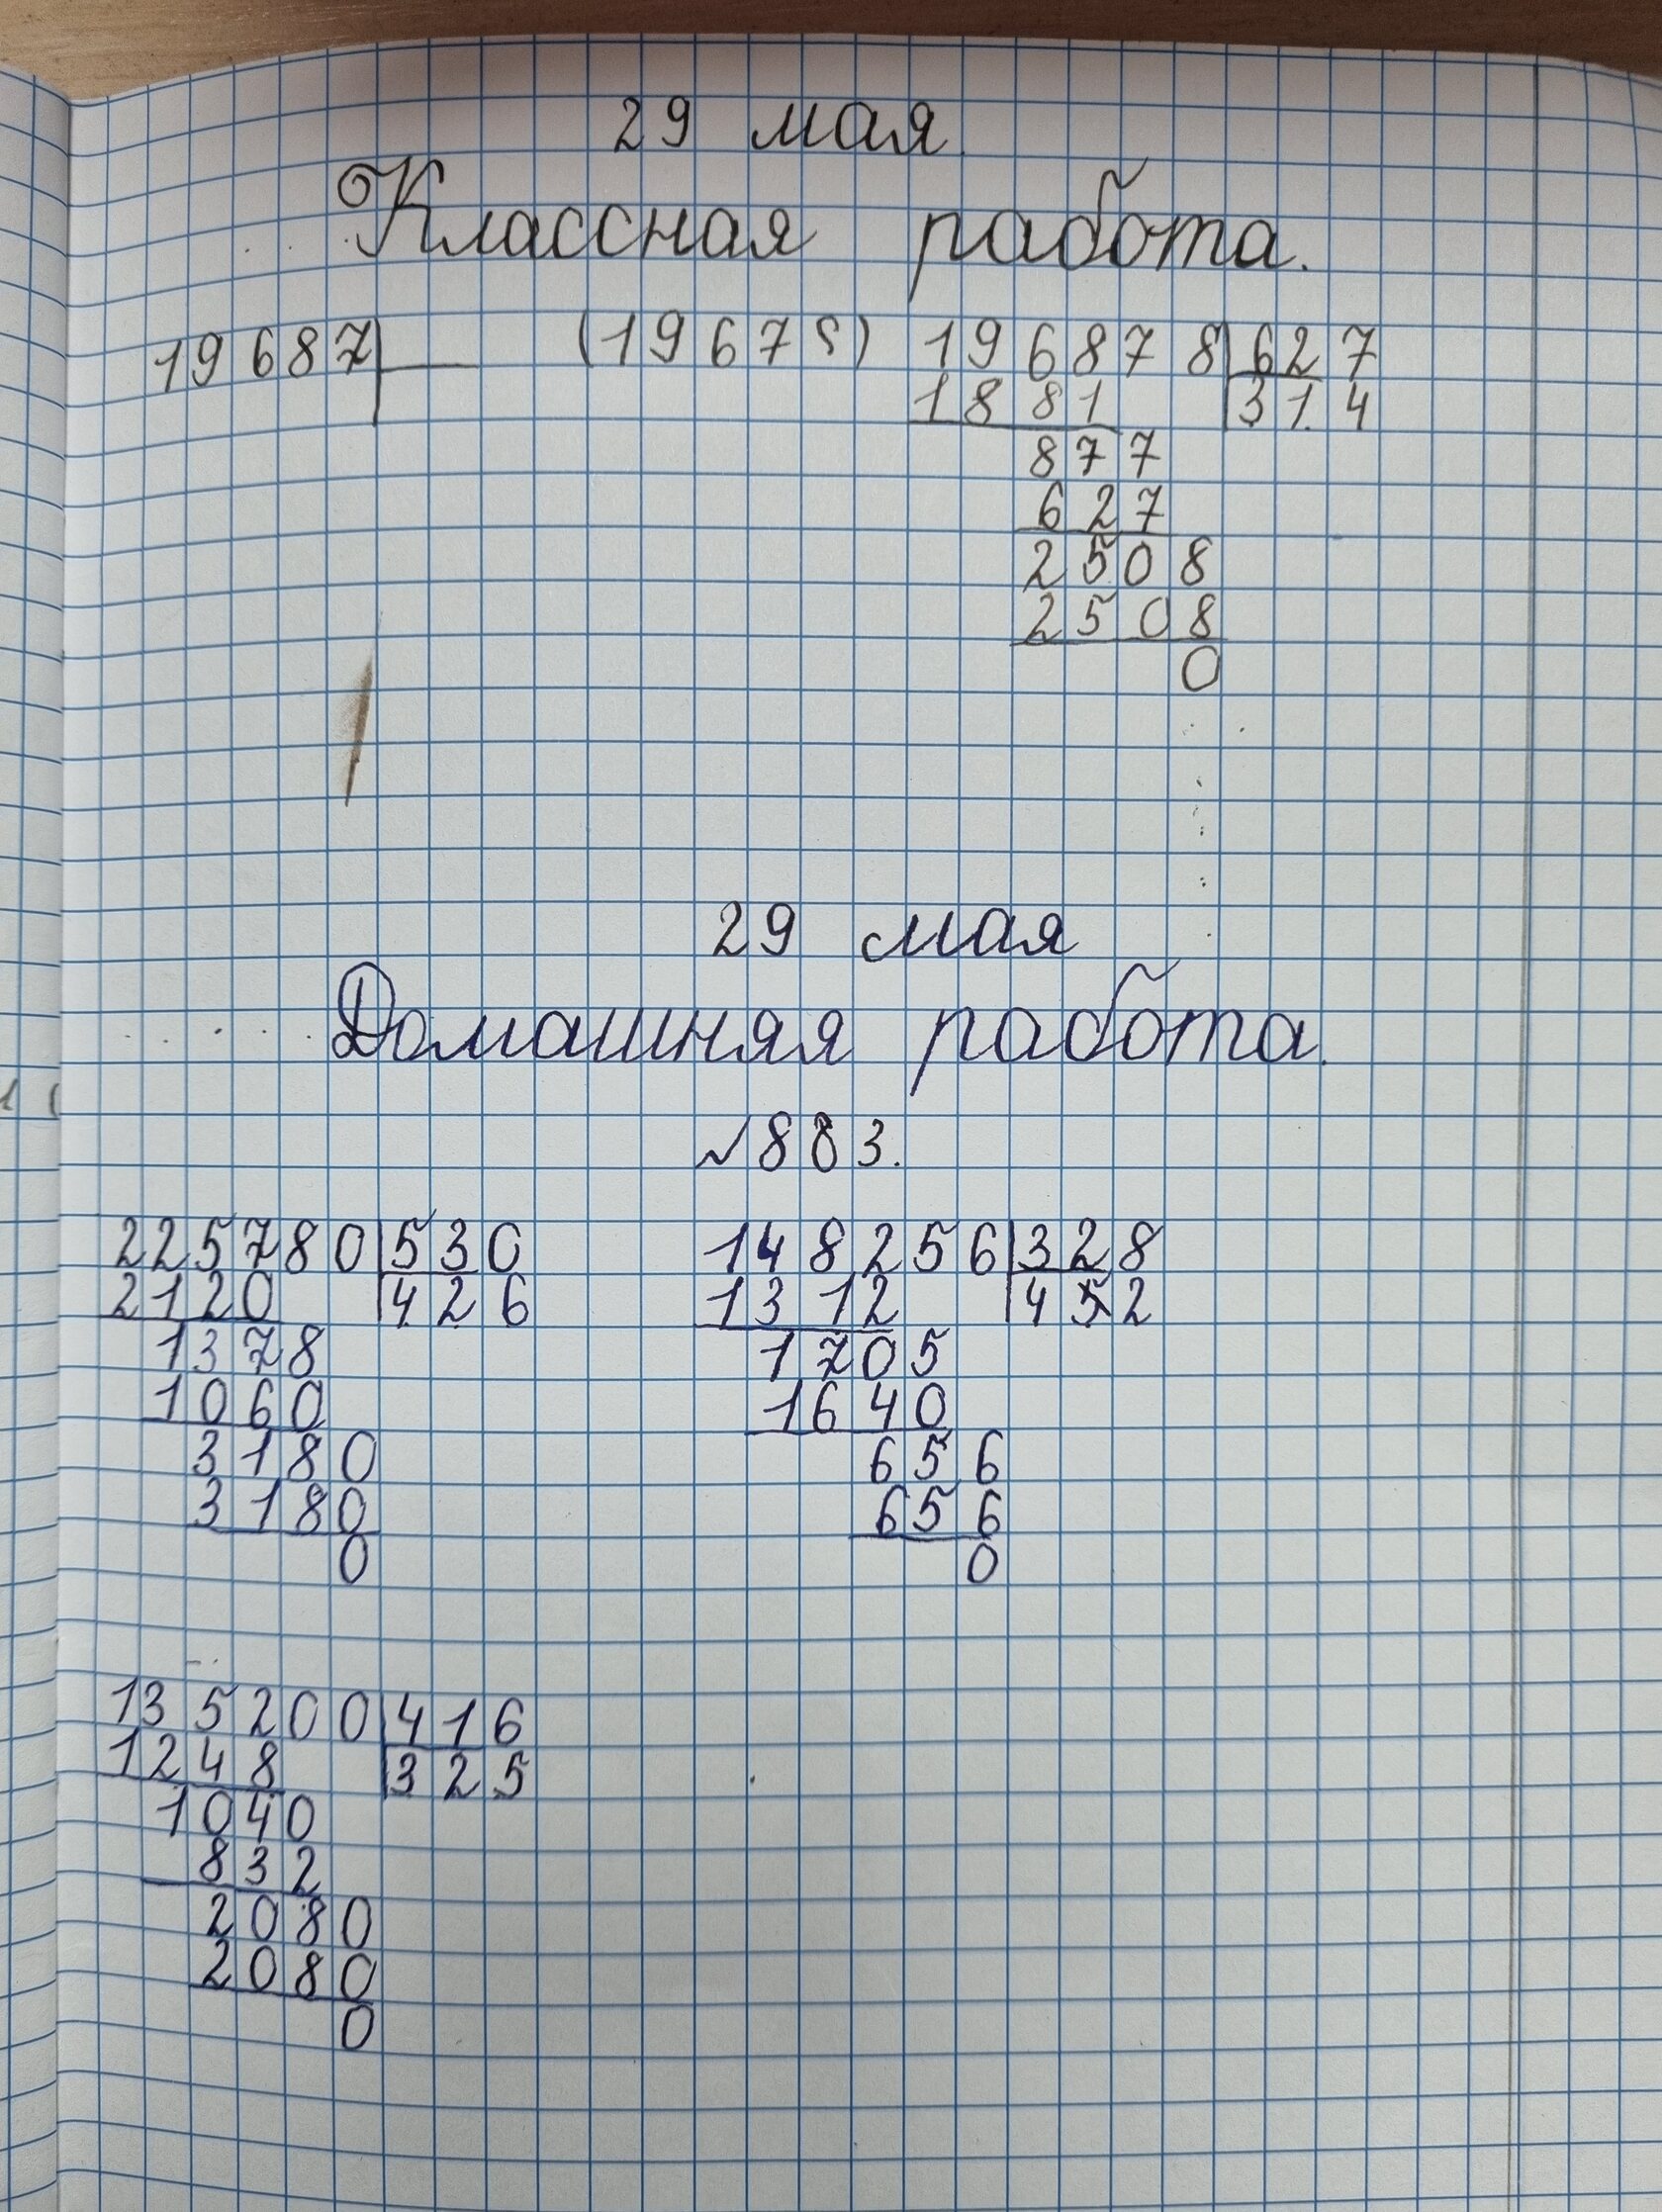 29 мая.
Классная работа.
19687 (1967 ) 196878 627
1881 314
877
627
2508
2508
0
29 мая
Домашняя работа.
№883.
225780 530 148256 328
2120 426 1312 452
1378 1705
1060 1640
3180 656
3180 656
0 0
135200 416
1248 325
1040
832
2080
2080
0